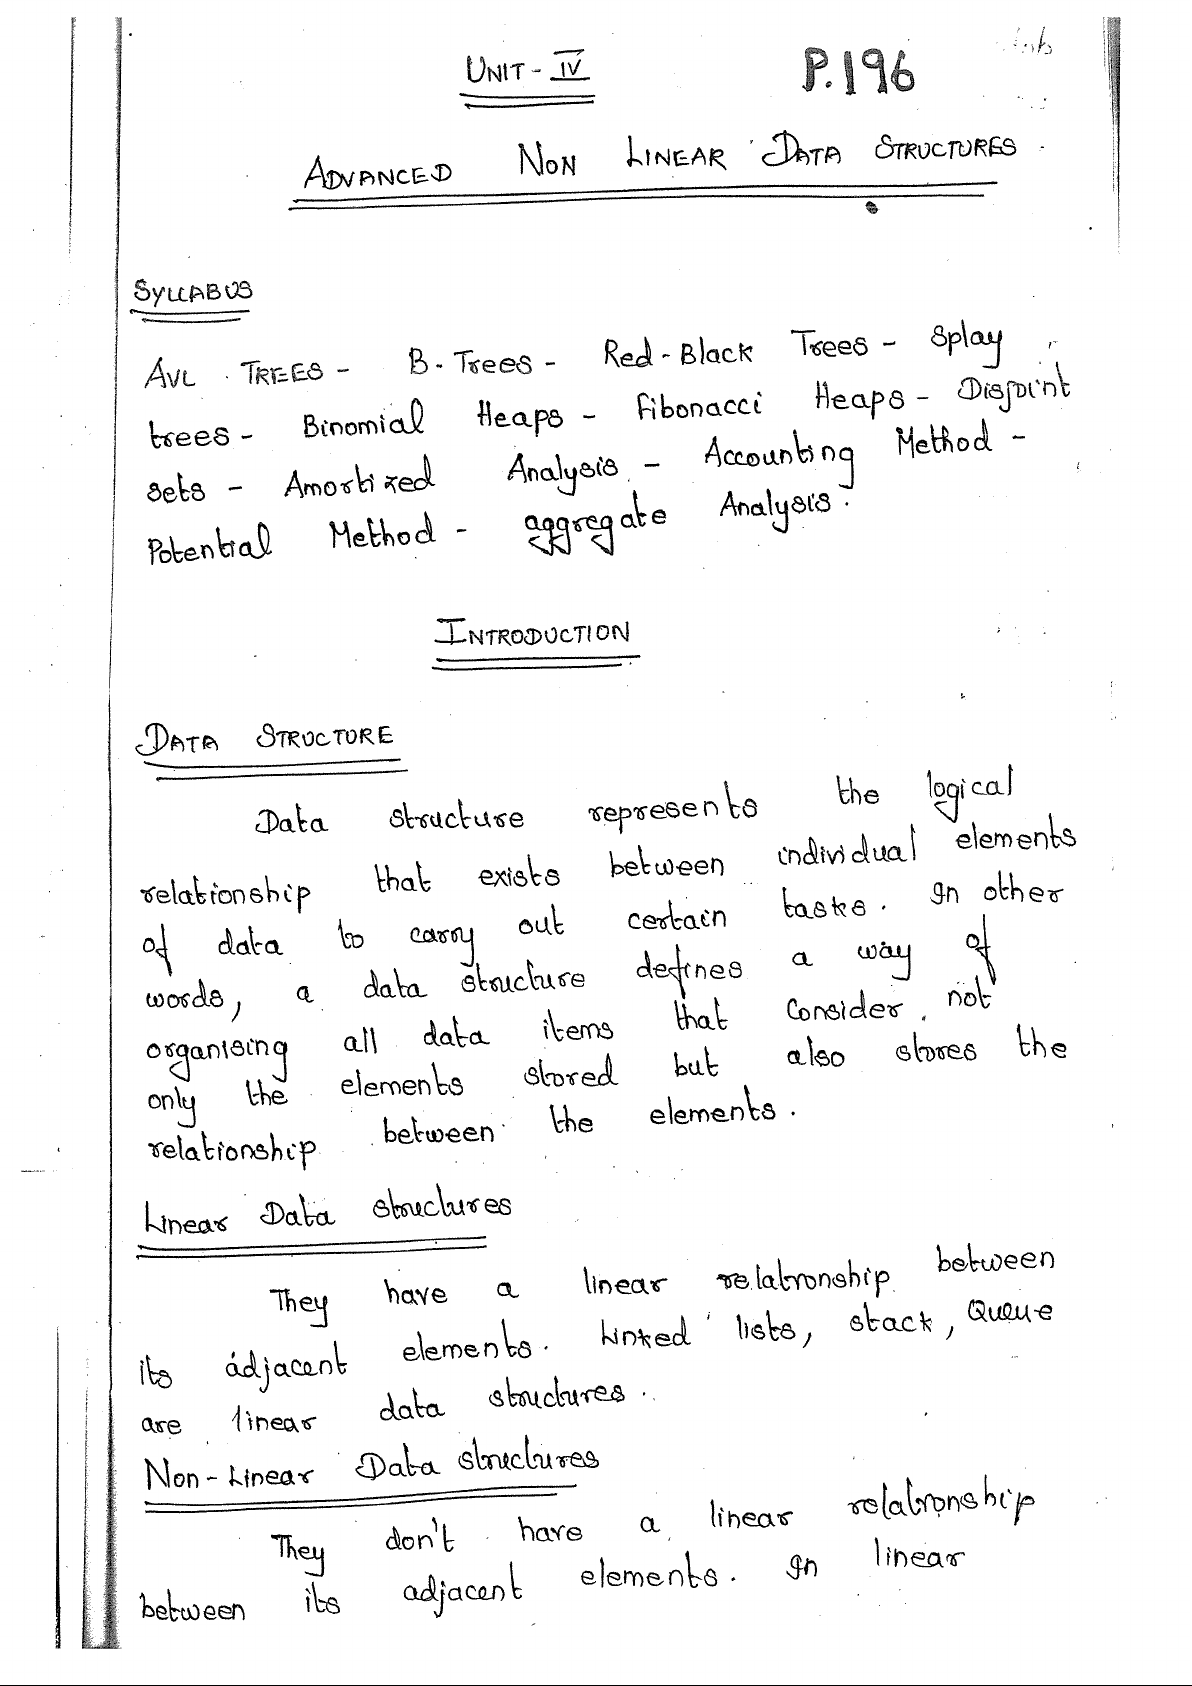 UNIT - IV
P.196
ADVANCED NON LINEAR DATA STRUCTURES
SYLLABUS
AVL TREES - B-Trees - Red-Black Trees - Splay
trees - Binomial Heaps - Fibonacci Heaps - Disjoint
sets - Amortized Analysis - Accounting Method -
Potential Method - aggregate Analysis.
INTRODUCTION
DATA STRUCTURE
Data structure represents the logical
relationship that exists between individual elements
of data to carry out certain tasks. In other
words, a data structure defines a way of
organising all data items that consider not
only the elements stored but also stores the
relationship between the elements.
Linear Data structures
They have a linear relationship between
its adjacent elements. Linked lists, stack, Queue
are linear data structures.
Non-Linear Data structures
They don't have a linear relationship
between its adjacent elements. In linear